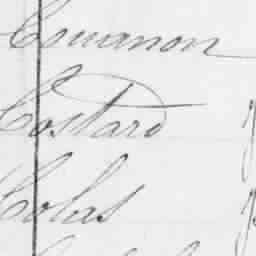 Couanon
Costard
Colas